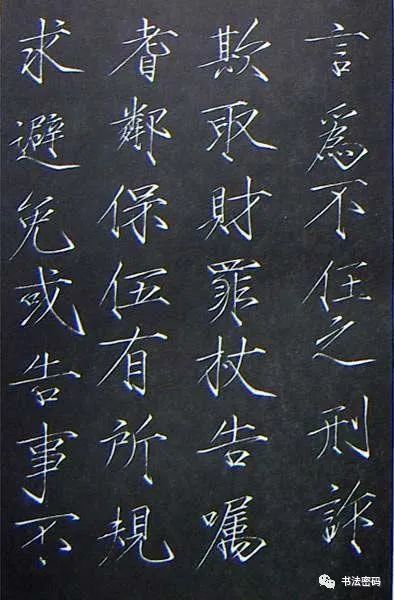 言爲不任之刑詐
欺取財罪杖告囑
耆鄰保伍有所規
求避免或告事不
书法密码